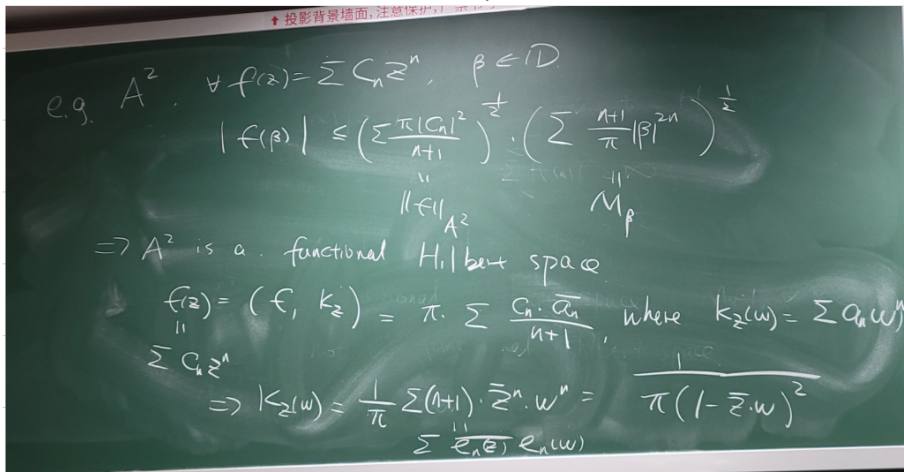 ⬆ 投影背景墙面,注意保护,
e.g. A². ∀ f(z) = Σ Cₙ zⁿ, β ∈ D.
|f(β)| ≤ (Σ π|Cₙ|²/(n+1))^{1/2} · (Σ (n+1)/π |β|^{2n})^{1/2}
‖ ‖
‖f‖_{A²} M_β
⇒ A² is a functional Hilbert space
f(z) = (f, K_z) = π · Σ (Cₙ · \overline{aₙ})/(n+1), where k_z(w) = Σ aₙ wⁿ
‖
Σ Cₙ zⁿ
⇒ K_z(w) = 1/π Σ (n+1) · \overline{z}ⁿ · wⁿ = 1/(π(1 - \overline{z} · w)²)
‖
Σ \overline{eₙ(z)} eₙ(w)